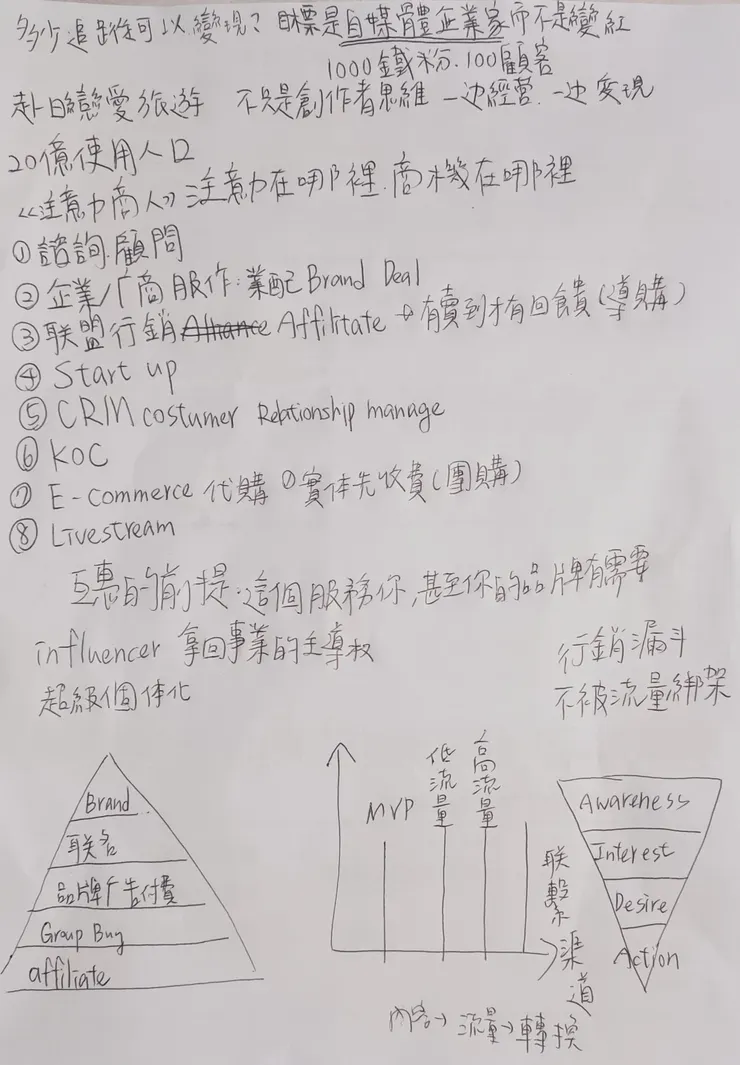 多少追蹤可以變現？目標是自媒體企業家而不是變紅
1000鐵粉.100顧客
赴日戀愛旅遊 不只是創作者思維 一边經營.一边变現
20億使用人口
《注意力商人》注意力在哪裡.商機在哪裡
① 諮詢.顧問
② 企業/厂商服作:業配Brand Deal
③ 联盟行銷Alliance Affilitate → 有賣到才有回饋(導購)
④ Start up
⑤ CRM costumer Relationship manage
⑥ KOC
⑦ E-commerce 代購 ①實体先收費(團購)
⑧ Livestream
互惠的前提.這個服務你,甚至你的品牌有需要
influencer 拿回事業的主導权
超級個体化
行銷漏斗
不被流量綁架
Brand
联名
品牌广告付費
Group Buy
affiliate
MVP
低流量
高流量
联繫渠道
內容→流量→轉換
Awareness
Interest
Desire
Action